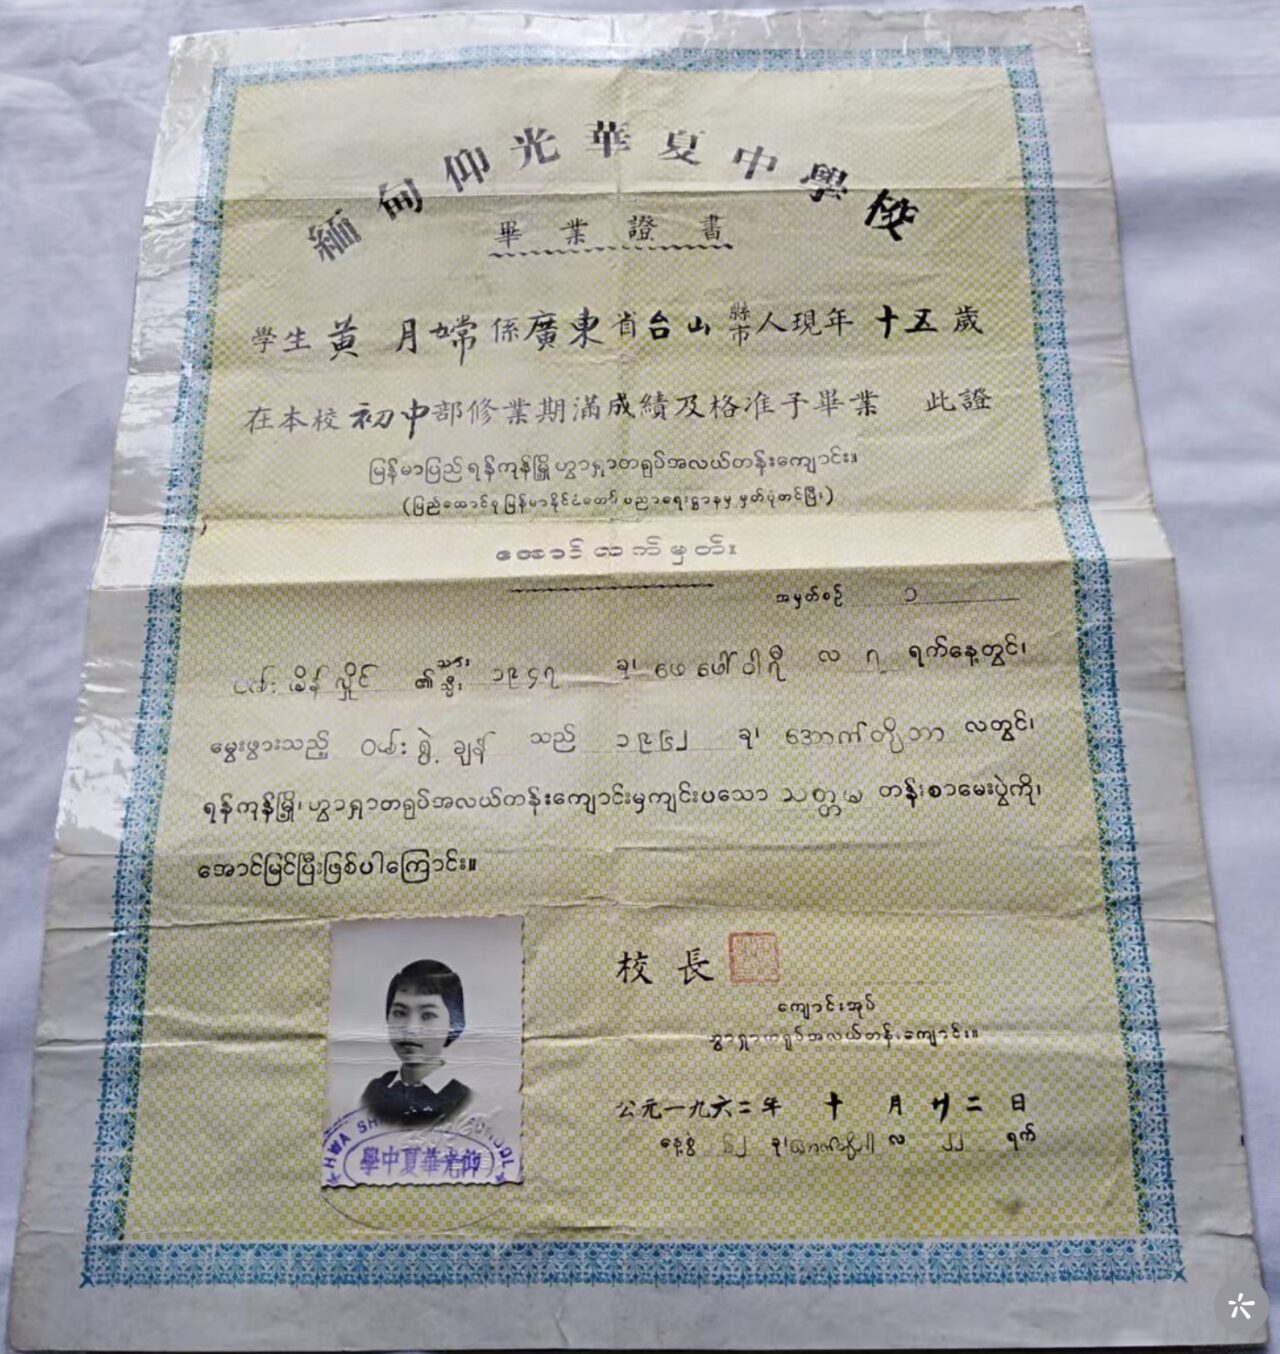 緬甸仰光華夏中學校
畢業證書
學生 黃 月嫦 係廣東省台山縣市人現年 十五 歲
在本校 初中 部修業期滿成績及格准予畢業 此證
မြန်မာပြည် ရန်ကုန်မြို့ ဟွာရှာတရုပ်အလယ်တန်းကျောင်း။
(ပြည်ထောင်စု မြန်မာနိုင်ငံတော် ပညာရေးဌာနမှ မှတ်ပုံတင်ပြီး)
အောင်လက်မှတ်။
အမှတ်စဉ် ၁
၏ သား၊ သမီး၊ ၁၉၄၇ ခု၊ ဖေဖေါ်ဝါရီ လ ၇ ရက်နေ့တွင်၊
မွေးဖွားသည့် ဝမ်းရွဲ့ချန် သည် ၁၉၆၂ ခု၊ အောက်တိုဘာ လတွင်၊
ရန်ကုန်မြို့၊ ဟွာရှာတရုပ်အလယ်တန်းကျောင်းမှကျင်းပသော သတ္တမ တန်းစာမေးပွဲကို၊
အောင်မြင်ပြီးဖြစ်ပါကြောင်း။
校長
ကျောင်းအုပ်
ဟွာရှာတရုပ်အလယ်တန်းကျောင်း။
公元一九六二年 十 月 廿二 日
နေ့စွဲ ၆၂ ခု၊ အောက်တိုဘာ လ ၂၂ ရက်
HWA SH SCHOOL
仰光華夏中學